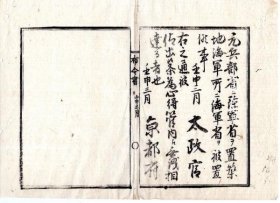 元兵部省ニ陸軍省ヲ置築
地海軍所ニ海軍省ヲ被置
候事
壬申二月 太政官
右之通被
仰出候条為心得管内ニ無洩相
達ル者也
壬申三月 京都府
布令書